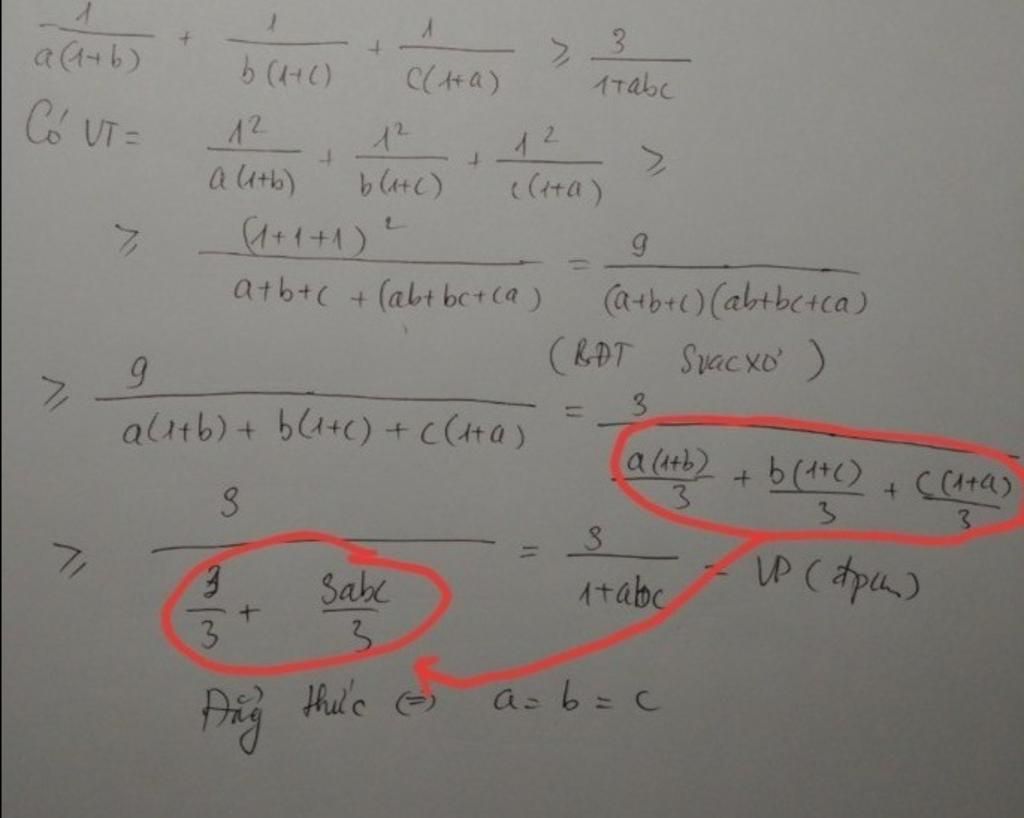 1/a(1+b) + 1/b(1+c) + 1/c(1+a) ≥ 3/1+abc
Có VT = 1²/a(1+b) + 1²/b(1+c) + 1²/c(1+a) ≥
≥ (1+1+1)²/a+b+c + (ab+bc+ca) = 9/(a+b+c)(ab+bc+ca)
(BĐT Svacxơ)
≥ 9/a(1+b) + b(1+c) + c(1+a) = 3/a(1+b)/3 + b(1+c)/3 + c(1+a)/3
≥ 3/3/3 + 3abc/3 = 3/1+abc = VP (đpcm)
Đẳg thức ⇔ a = b = c